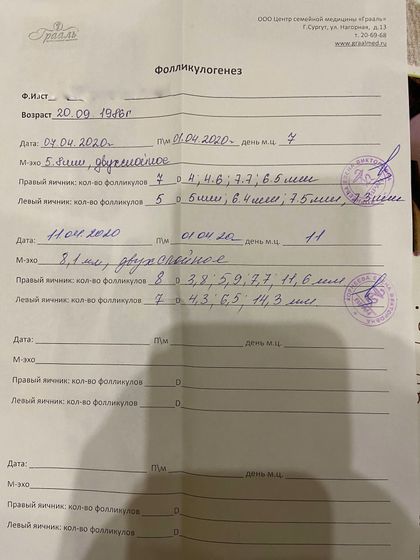 Грааль
ООО Центр семейной медицины «Грааль»
Г.Сургут, ул. Нагорная, д.13
т. 20-69-68
www.graalmed.ru
Фолликулогенез
Ф.И
Возраст 20.09 1986г
Дата: 07.04.2020г П\м 01.04.2020г день м.ц. 7
М-эхо 5.8мм, двухслойное
Правый яичник: кол-во фолликулов 7 D 4, 4.6; 7.7; 6.5 мм
Левый яичник: кол-во фолликулов 5 D 5мм, 6.4мм; 7.5мм, 7.3мм
Дата: 11.04 2020 П\м 01 04 20г день м.ц. 11
М-эхо 8,1 мм, двухслойное
Правый яичник: кол-во фолликулов 8 D 3,8; 5,9; 7,7; 11,6 мм
Левый яичник: кол-во фолликулов 7 D 4,3; 6,5; 14,3 мм
Дата: П\м день м.ц.
М-эхо
Правый яичник: кол-во фолликулов D
Левый яичник: кол-во фолликулов D
Дата: П\м день м.ц.
М-эхо
Правый яичник: кол-во фолликулов D
Левый яичник: кол-во фолликулов D